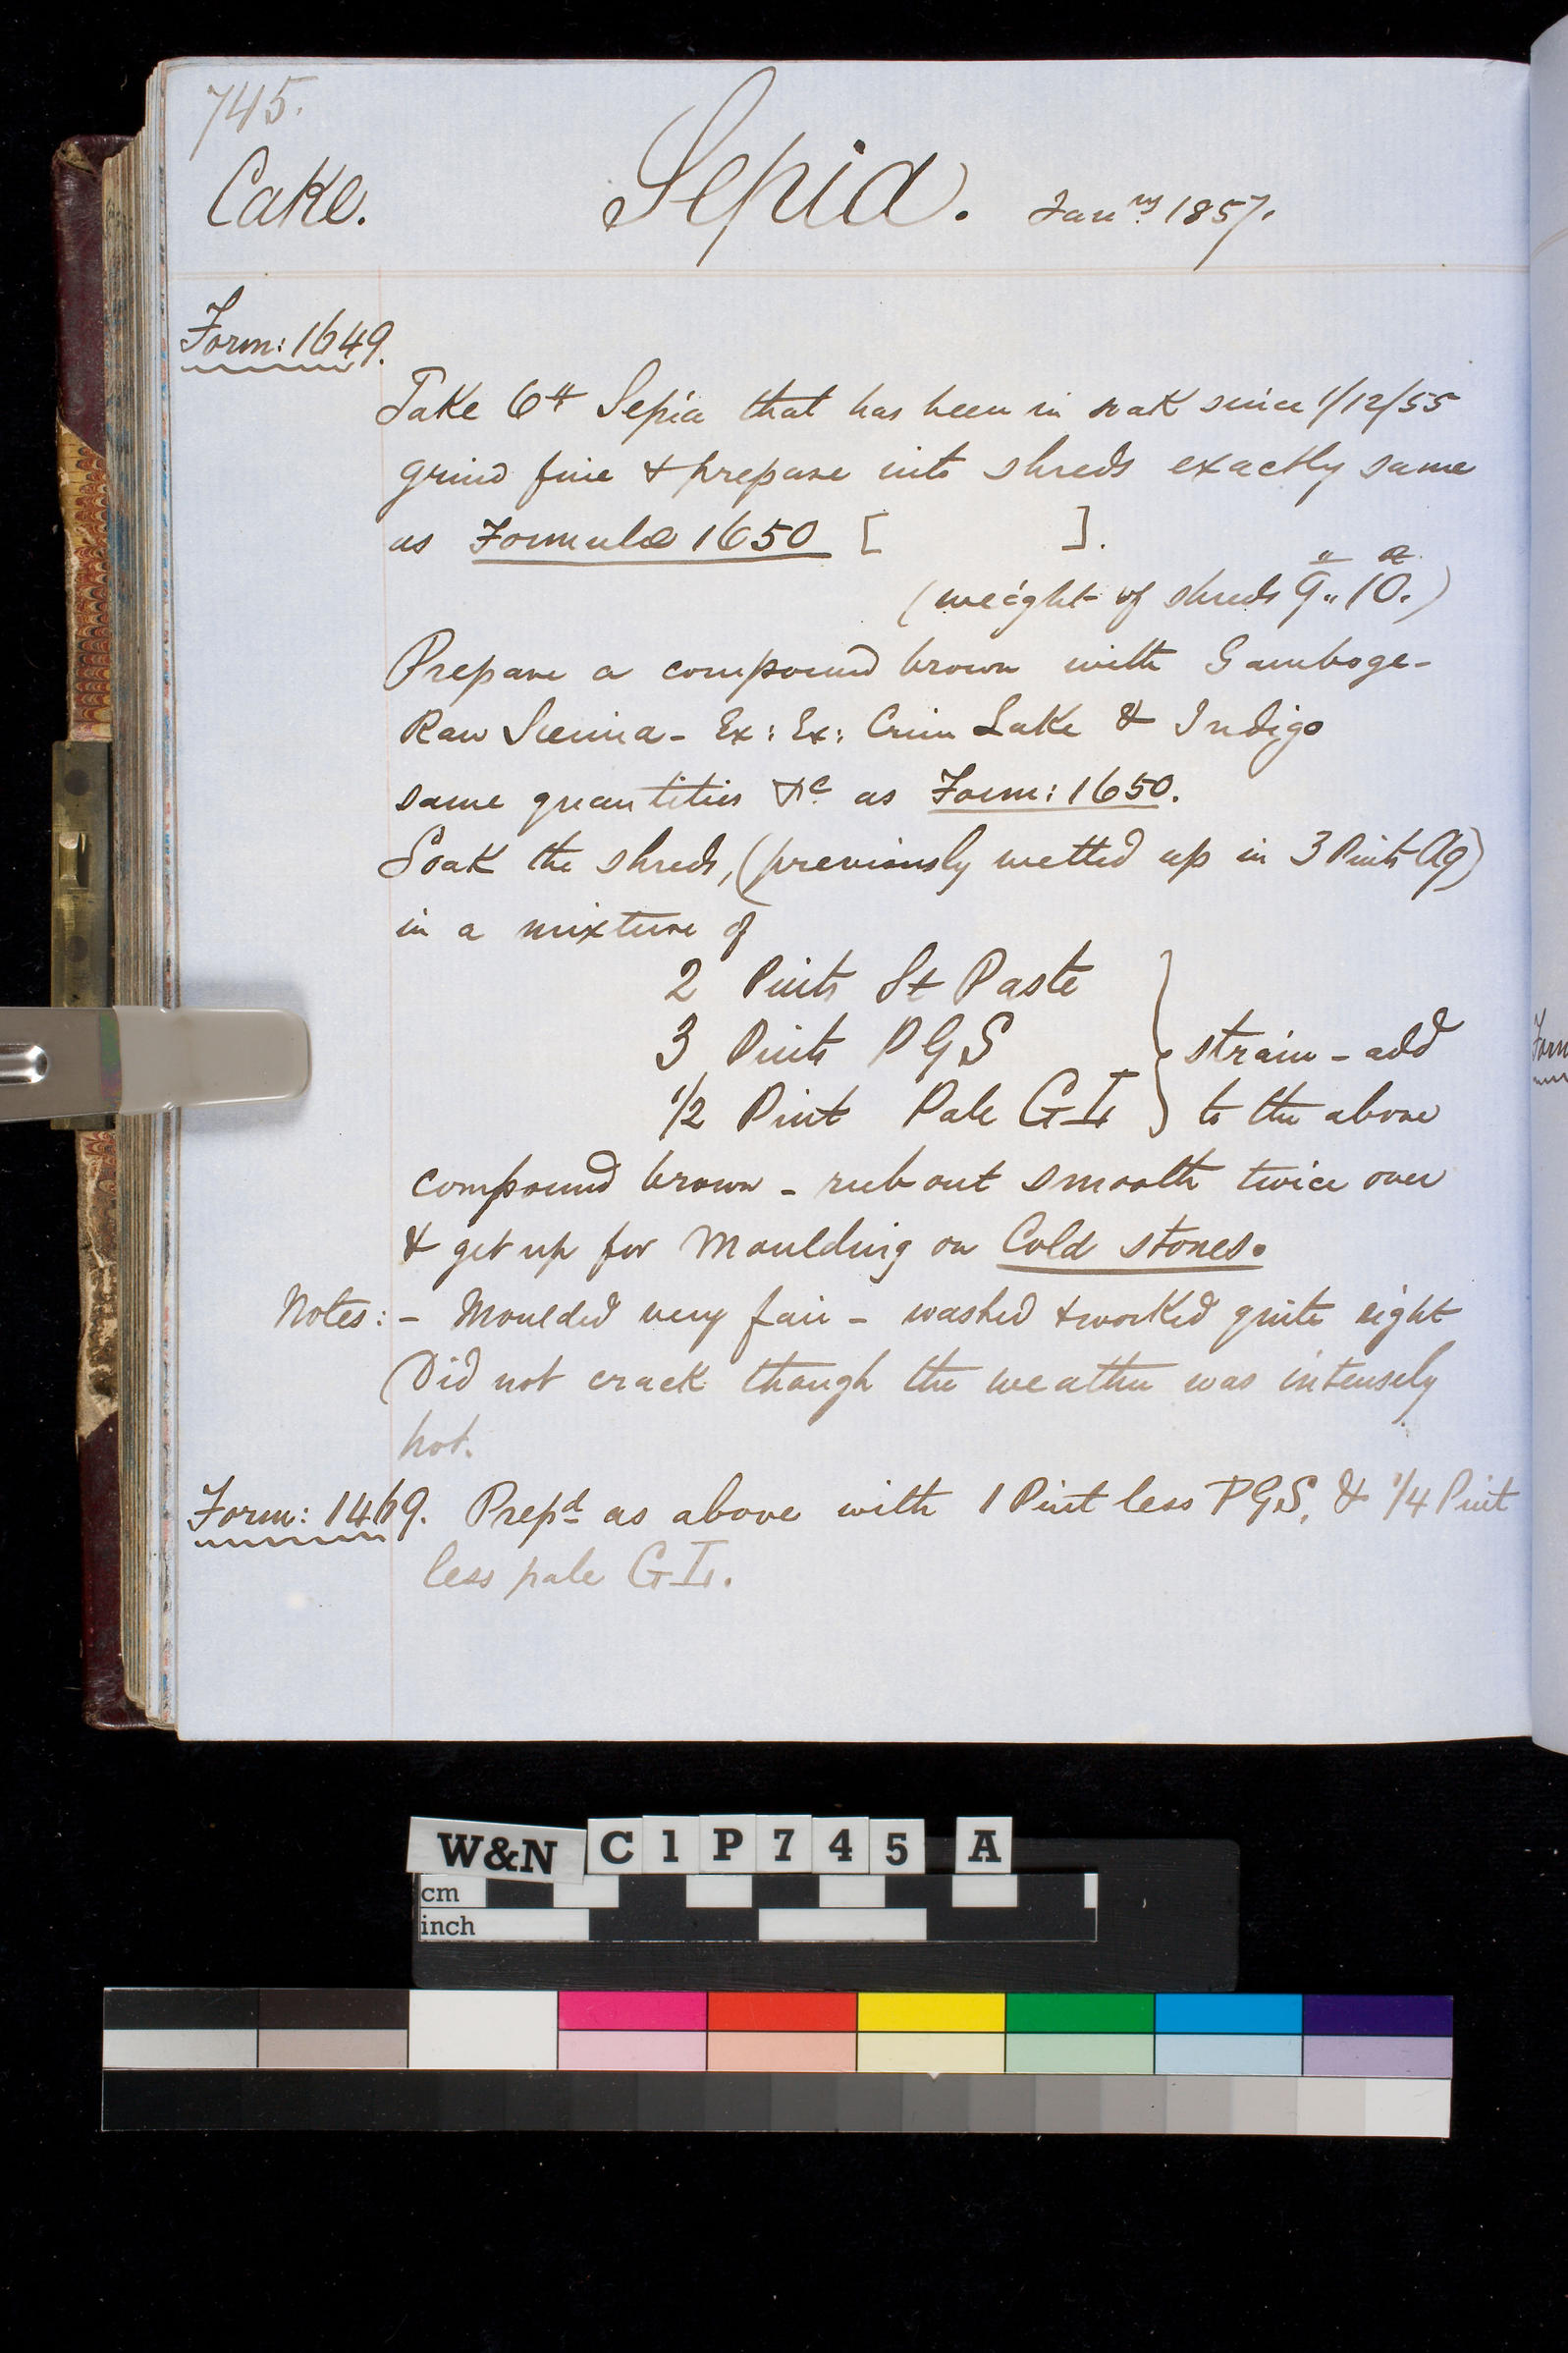 745.
Cake. Sepia. Janry 1857.
Form: 1649.
Take 6lb Sepia that has been in soak since 1/12/55
grind fine & prepare into shreds exactly same
as Formula 1650 [ ].
(weight of shreds 9lb„10oz.)
Prepare a compound brown with Gamboge-
Raw Sienna - Ex: Ex: Crim Lake & Indigo
same quantities &c as Form: 1650.
Soak the shreds, (previously wetted up in 3 Pints Aq)
in a mixture of
2 Pints St Paste
3 Pints PGS } strain - add
1/2 Pint Pale GI } to the above
compound brown - rub out smooth twice over
& get up for Moulding on Cold stones.
Notes: - Moulded very fair - washed & worked quite right
Did not crack though the weather was intensely
hot.
Form: 1469. Prepd as above with 1 Pint less PGS, & 1/4 Pint
less pale GI.
Form
W&N C1P745 A
cm
inch